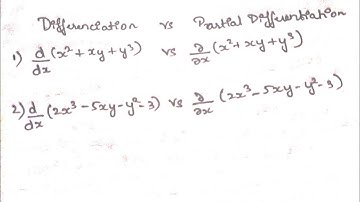 Differenciation vs Partial Differentiation
1) d/dx (x² + xy + y³) vs ∂/∂x (x² + xy + y³)
2) d/dx (2x³ - 5xy - y² - 3) vs ∂/∂x (2x³ - 5xy - y² - 3)